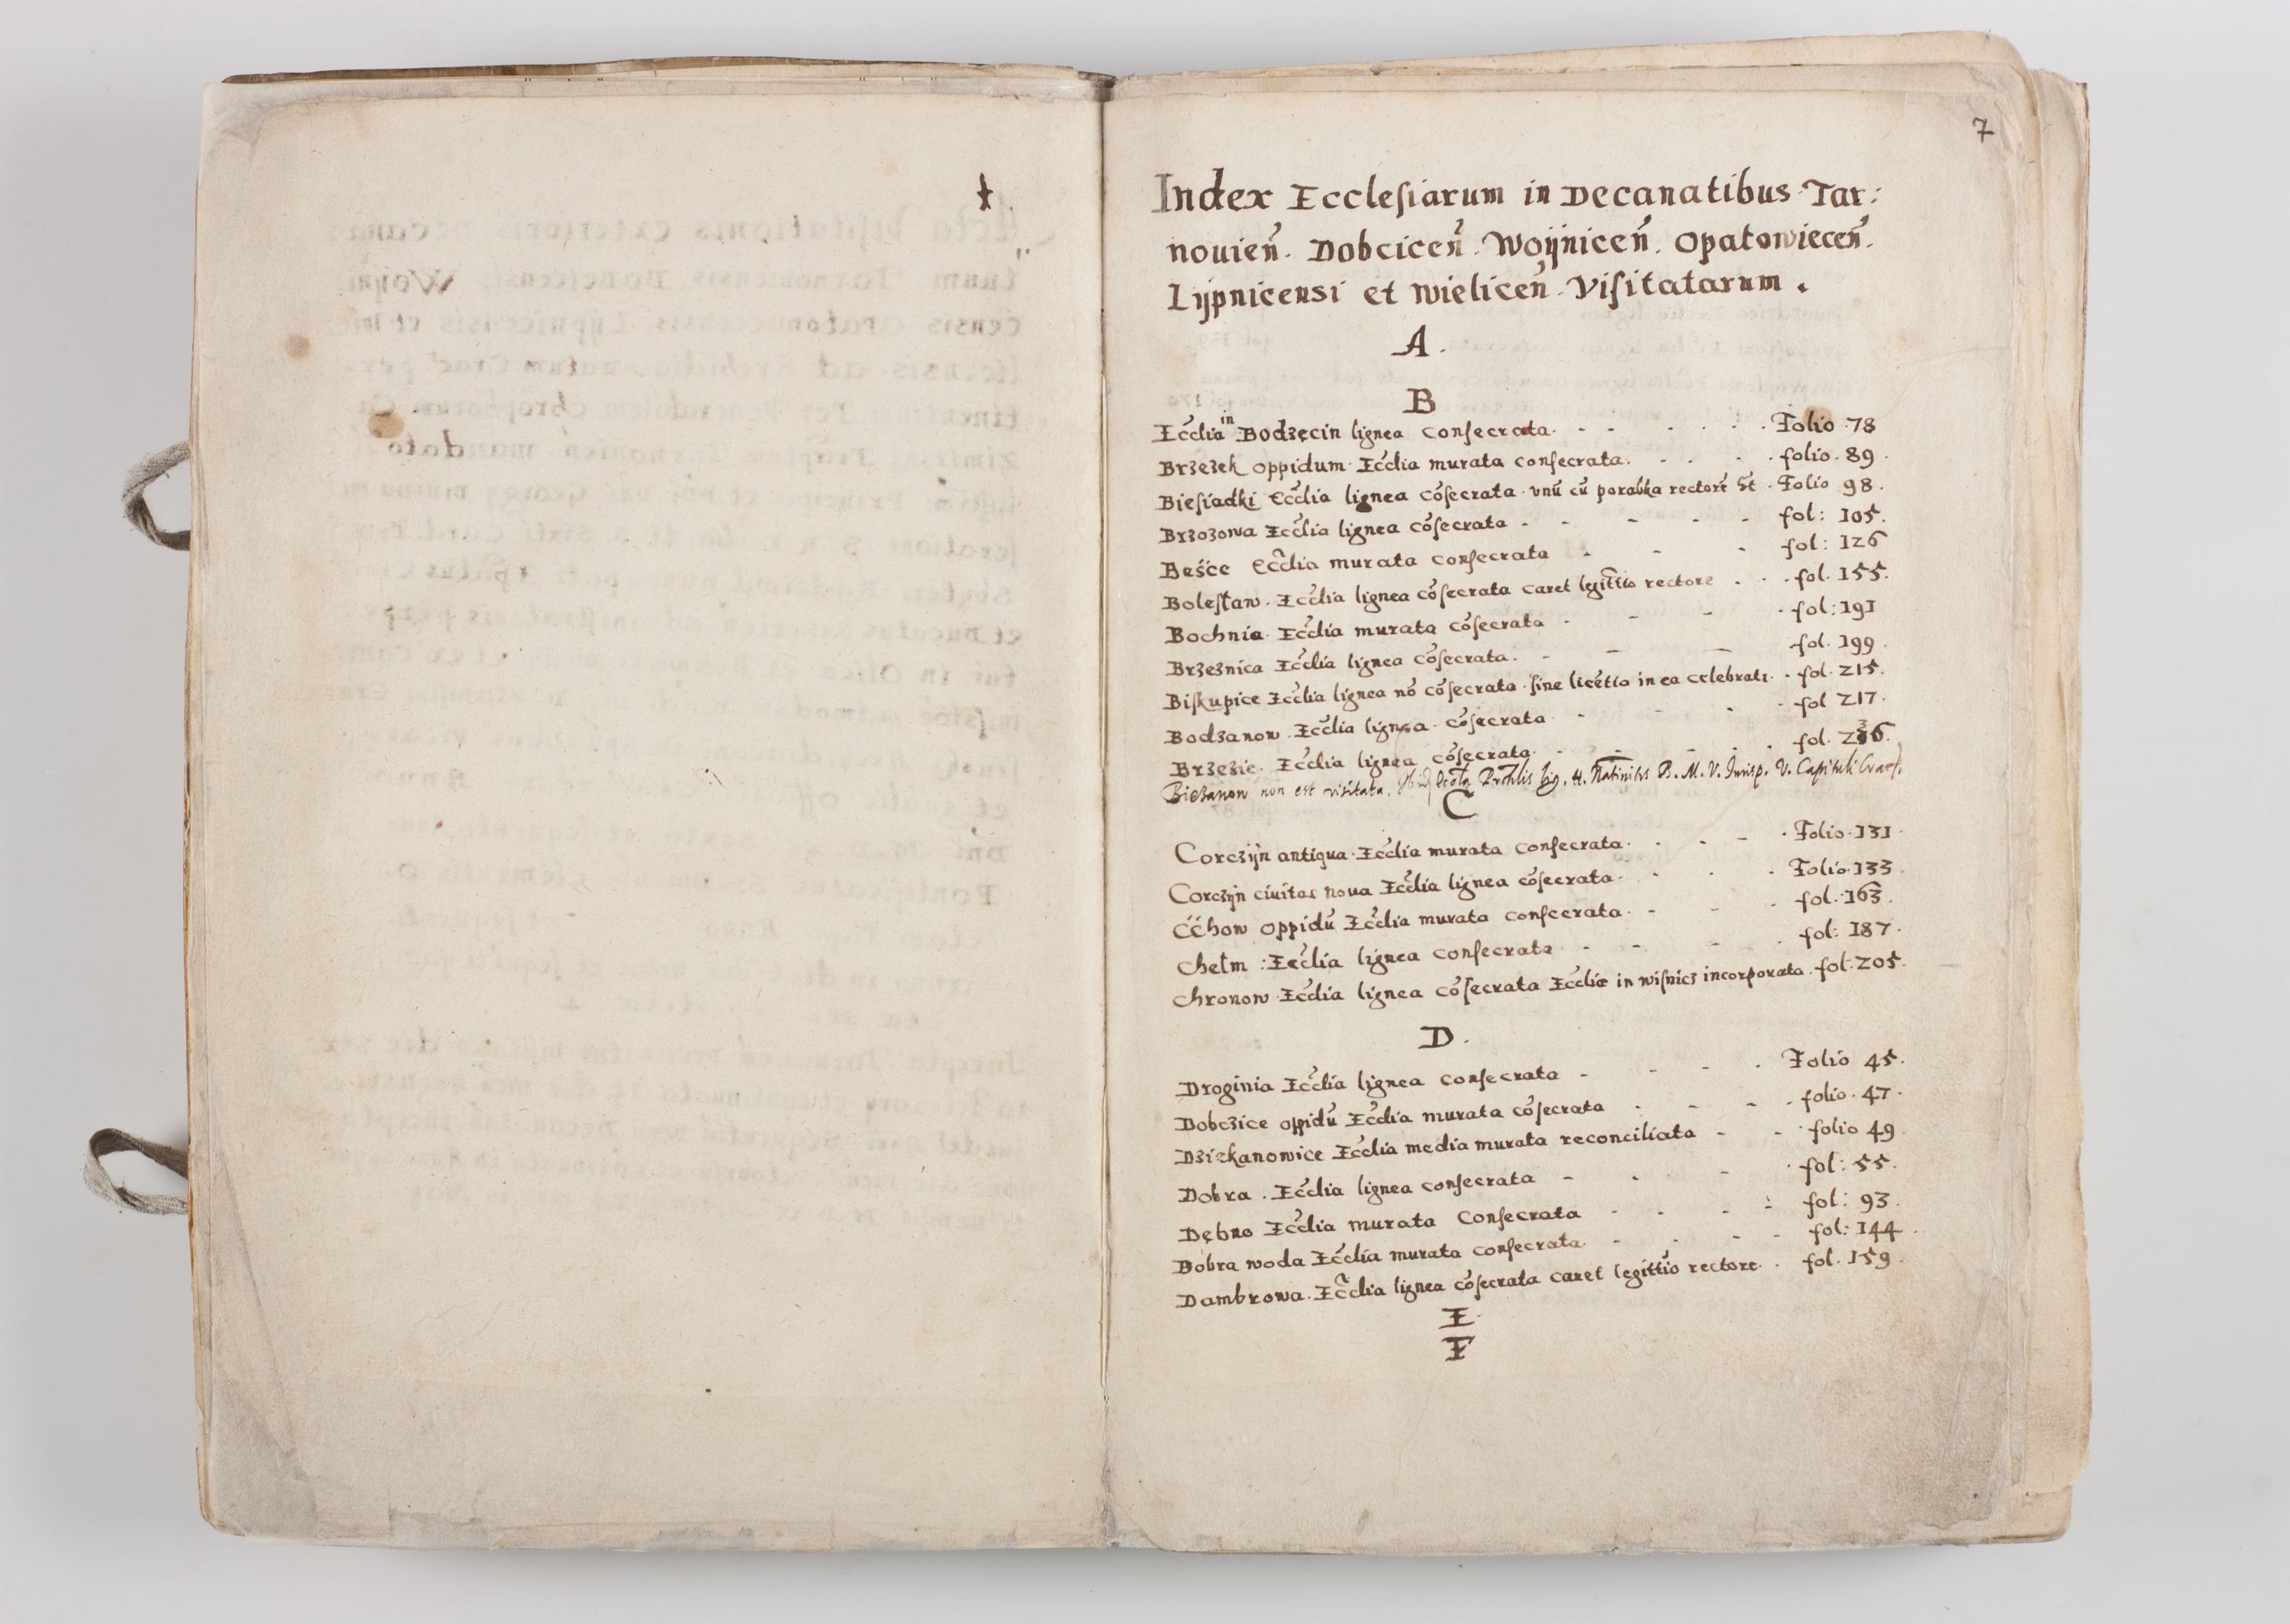 7
Index Ecclesiarum in Decanatibus Tar:
nouień. Dobciceń. Woÿniceń. Opatowieceń.
Lÿpnicensi et Wieliceń. Visitatarum.
A.
B
Ecclia in Bodzęcin lignea consecrata. Folio 78
Brzezek oppidum Ecclia murata consecrata. folio. 89.
Biesiadki Ecclia lignea cosecrata. vnū cū porabka rectore Folio 98.
Brzozowa Ecclia lignea cōsecrata fol: 105.
Beśće Ecclia murata consecrata fol: 126
Bolesław. Ecclia lignea cōsecrata caret legittio rectore fol. 155.
Bochnia Ecclia murata cōsecrata fol: 191
Brzeznica Ecclia lignea cōsecrata. fol. 199.
Biskupice Ecclia lignea nō cōsecrata. sine licētia in ea celebrat. fol. 215.
Bodzanow. Ecclia lignea. cōsecrata fol 217.
Brzezie. Ecclia lignea cōsecrata. fol. 236.
Biezanow non est visitata. Lig. Nativitis B. M. V. Jurisp. V. Capituli Crac.
C
Corczÿn antiqua. Ecclia murata consecrata. Folio. 131.
Corczÿn ciuitas noua Ecclia lignea cōsecrata. Folio. 133.
Cćhow oppidū Ecclia murata consecrata. fol. 163.
Chełm: Ecclia lignea consecrata fol: 187.
Chronow Ecclia lignea cōsecrata Eccliæ in Wisnicz incorporata. fol. 205.
D.
Droginia Ecclia lignea consecrata Folio 45.
Dobczice oppidū Ecclia murata cōsecrata folio. 47.
Dziekanowice Ecclia media murata reconciliata folio 49.
Dobra. Ecclia lignea consecrata fol: 55.
Dębno Ecclia murata Consecrata fol: 93.
Dobra woda Ecclia murata consecrata. fol: 144.
Dambrowa. Ecclia lignea cōsecrata caret legittio rectore. fol. 159.
E
F